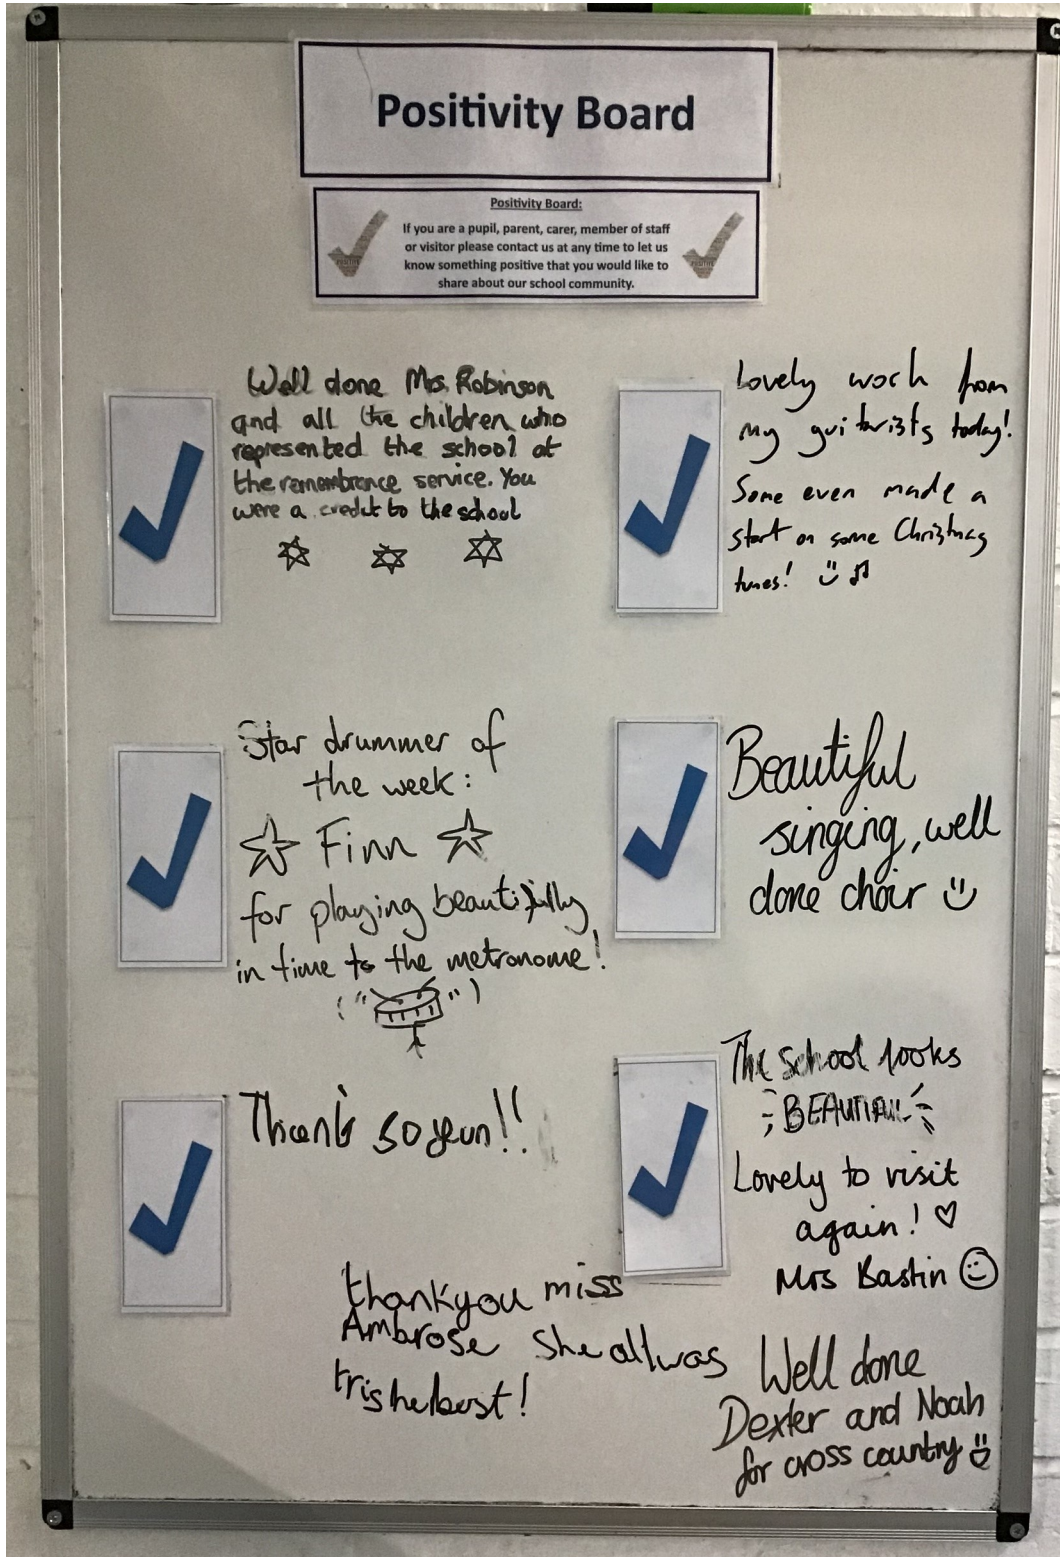 Positivity Board
Positivity Board:
If you are a pupil, parent, carer, member of staff
or visitor please contact us at any time to let us
know something positive that you would like to
share about our school community.
Well done Mrs. Robinson
and all the children who
represented the school at
the remembrance service. You
were a credit to the school
Lovely work from
my guitarists today!
Some even made a
start on some Christmas
tunes!
Star drummer of
the week:
Finn
for playing beautifully
in time to the metronome!
Beautiful
singing, well
done choir
The school looks
BEAUTIFUL
Lovely to visit
again!
Mrs Bastin
thankyou miss
Ambrose she allwas
Well done
Dexter and Noah
for cross country